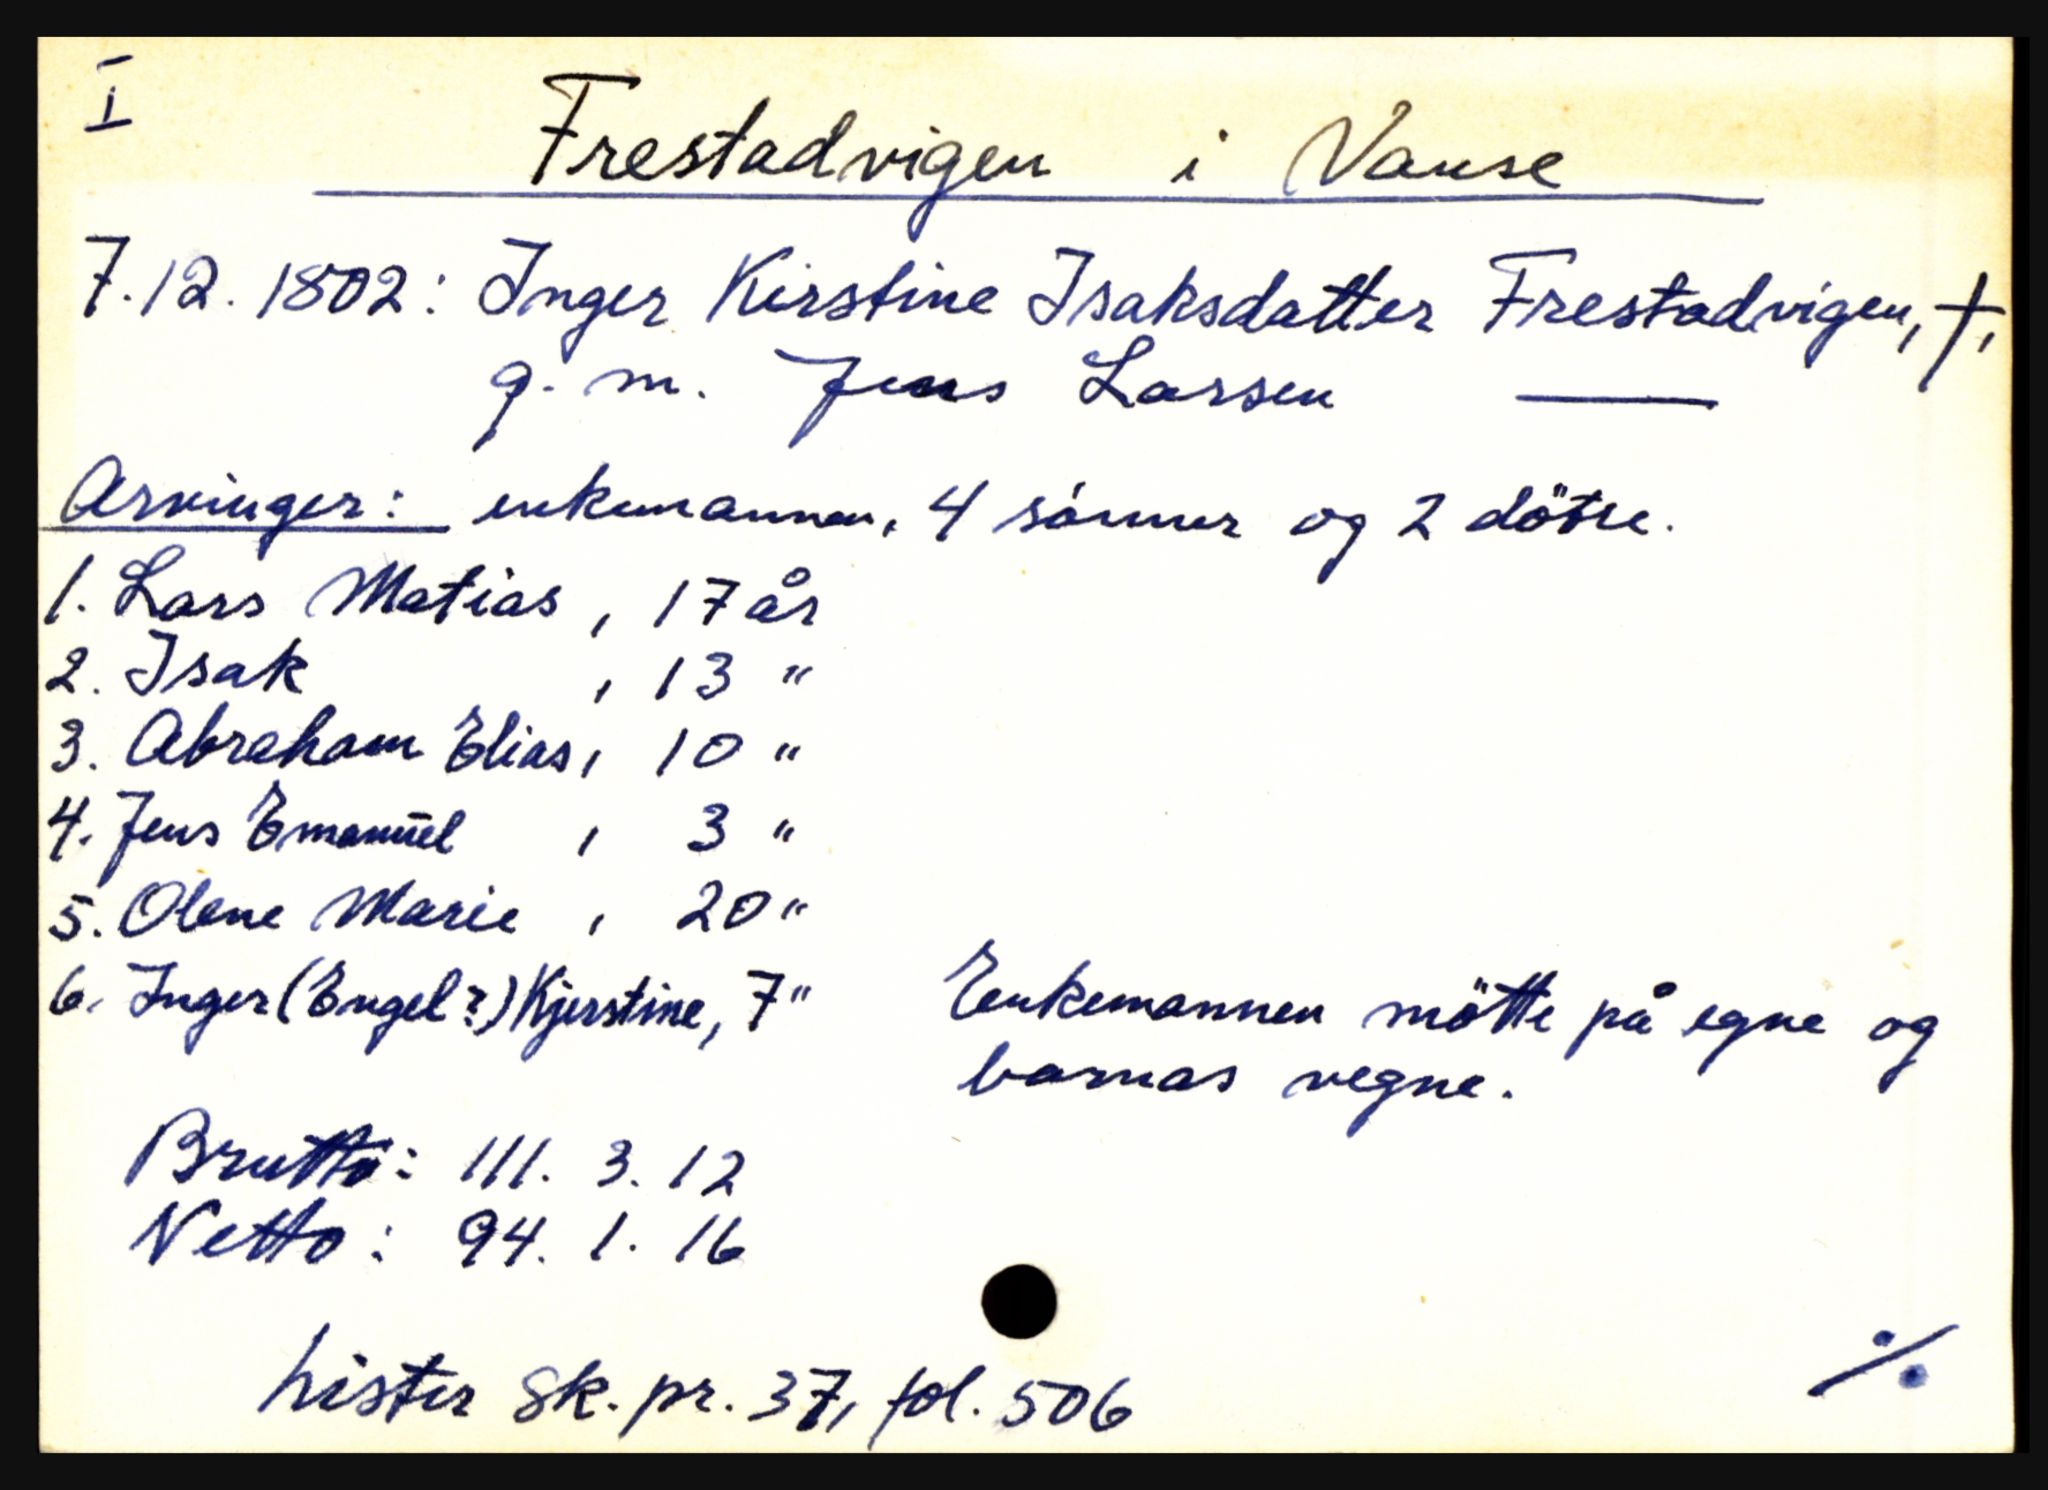 I
Frestadvigen i Vanse
7.12.1802: Inger Kirstine Isaksdatter Frestadvigen, †,
g. m. Jens Larsen ——
Arvinger: enkemannen, 4 sönner og 2 dötre.
1. Lars Matias, 17 år
2. Isak, 13 "
3. Abraham Elias, 10 "
4. Jens Emanuel, 3 "
5. Olene Marie, 20 "
6. Inger (Engel?) Kjerstine, 7 "
Enkemannen mötte på egne og
barnas vegne.
Brutto: 111. 3. 12
Netto: 94. 1. 16
Lister sk. pr. 37, fol. 506
·/.